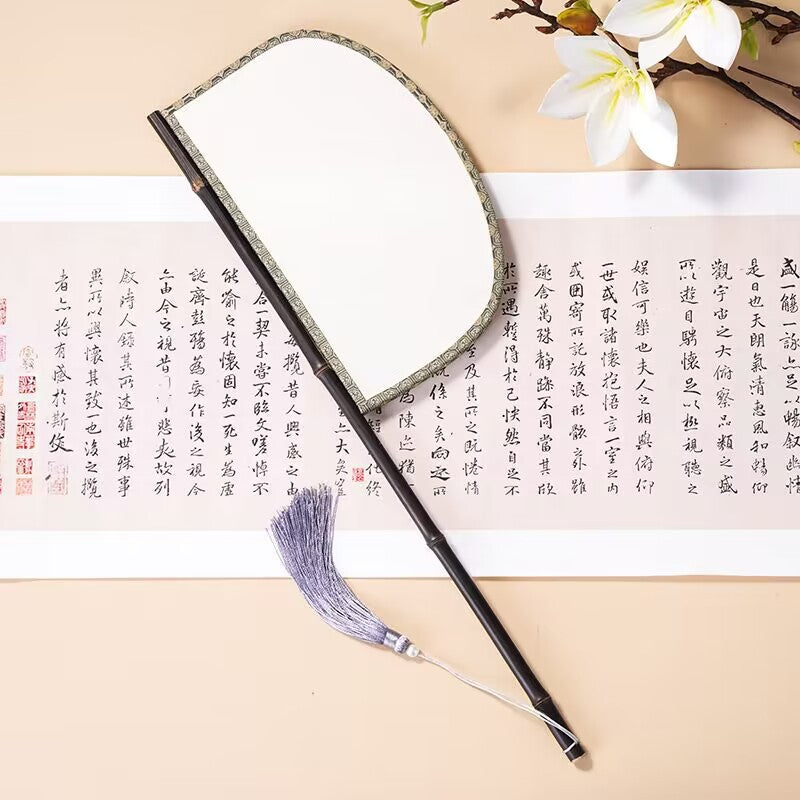 盛一觴一詠亦足以暢叙幽情
是日也天朗氣清惠風和暢仰
觀宇宙之大俯察品類之盛
所以遊目騁懷足以極視聽之
娛信可樂也夫人之相與俯仰
一世或取諸懷抱悟言一室之內
或因寄所託放浪形骸之外雖
趣舍萬殊靜躁不同當其欣
於所遇暫得於己怏然自足不
至及其所之既惓情
係之矣向之所
為陳迹猶
化終
生亦大矣豈
每攬昔人興感之由
合一契未嘗不臨文嗟悼不
能喻之於懷固知一死生為虛
誕齊彭殤為妄作後之視今
亦由今之視昔悲夫故列
叙時人錄其所述雖世殊事
異所以興懷其致一也後之攬
者亦將有感於斯文